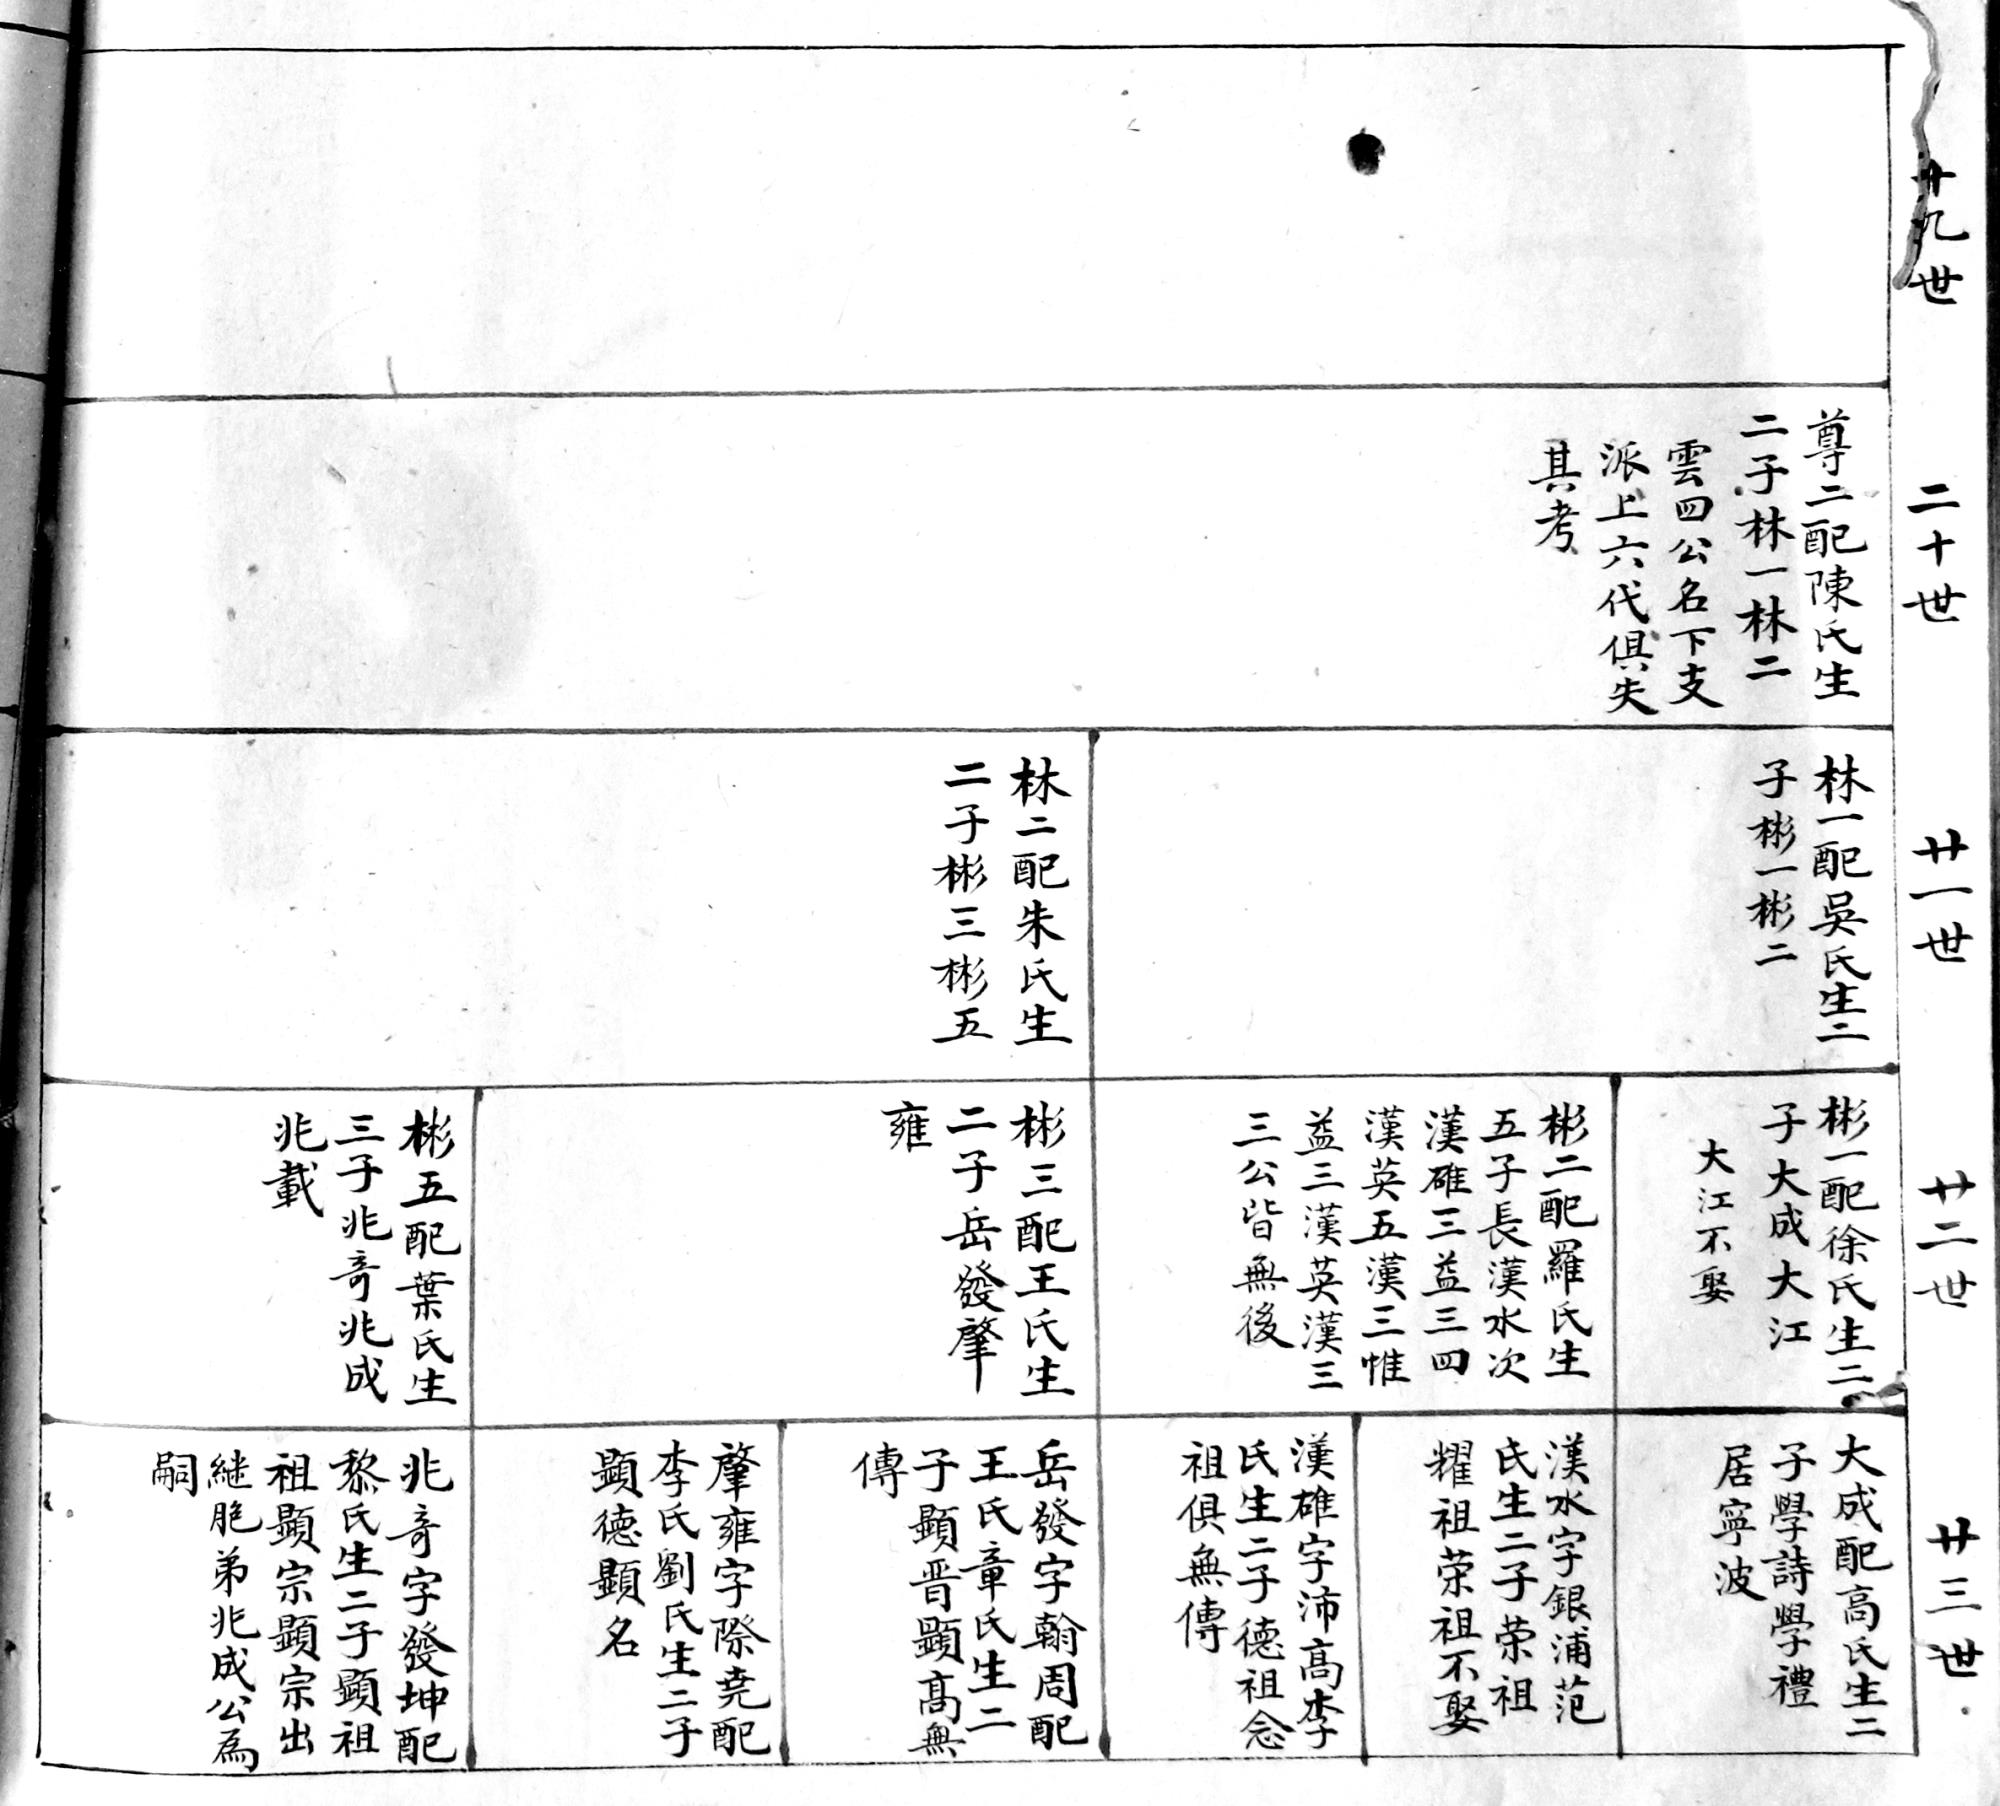 十九世
二十世
尊二配陳氏生
二子林一林二
雲四公名下支
派上六代俱失
其考
廿一世
林一配吳氏生二
子彬一彬二
林二配朱氏生
二子彬三彬五
廿二世
彬一配徐氏生二
子大成大江
大江不娶
彬二配羅氏生
五子長漢水次
漢碓三益三四
漢英五漢三惟
益三漢英漢三
三公皆無後
彬三配王氏生
二子岳發肇
雍
彬五配葉氏生
三子兆奇兆成
兆載
廿三世
大成配高氏生二
子學詩學禮
居寧波
漢水字銀浦范
氏生二子荣祖
耀祖荣祖不娶
漢雄字沛高李
氏生二子德祖念
祖俱無傳
岳發字翰周配
王氏章氏生二
子顯晋顯高無
傳
肇雍字際尭配
李氏劉氏生二子
顕德顕名
兆奇字發坤配
黎氏生二子顕祖
祖顕宗顕宗出
継胞弟兆成公為
嗣